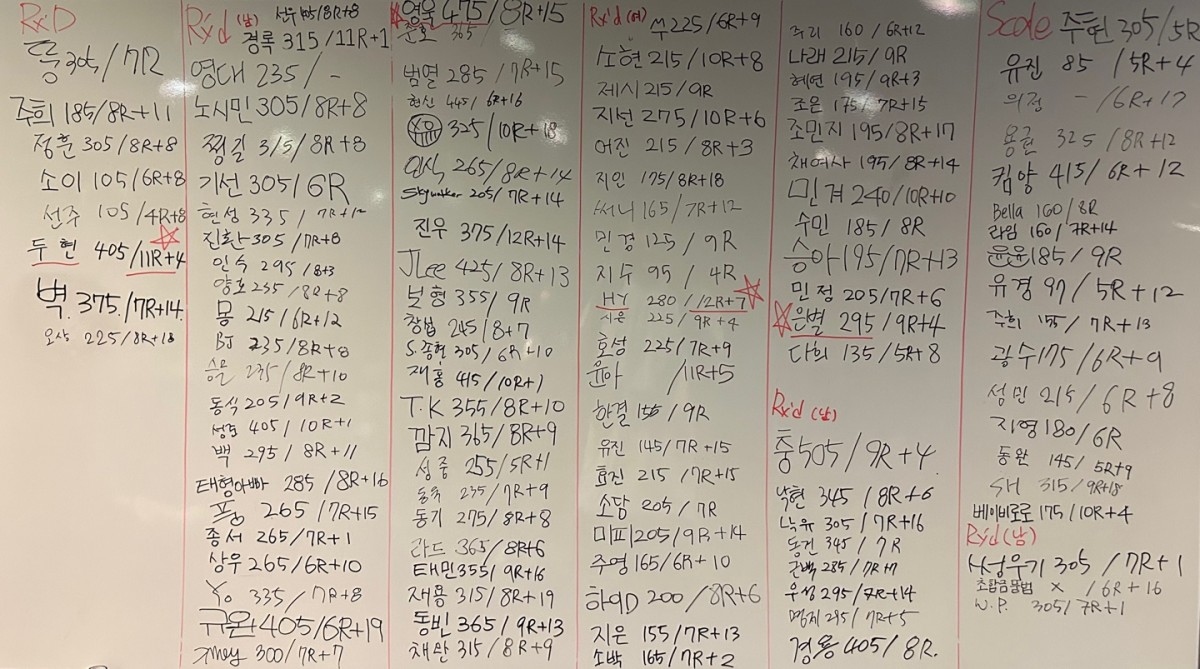 RX'D
305/7R
주희 185/8R+11
정훈 305/8R+8
소이 105/6R+8
선주 105/4R+8
두현 405/11R+4
벽 375/7R+14
225/8R+18
RX'd (남)
경록 315/11R+1
영대 235/-
노시민 305/8R+8
찡길 315/8R+8
기선 305/6R
현성 335/
진환 305/7R+8
인숙 295/8+3
양호 235/8R+8
몽 215/6R+12
BJ 235/8R+8
235/8R+10
동식 205/9R+2
405/10R+1
백 295/8R+11
태형아빠 285/8R+16
265/7R+15
종서 265/7R+1
상우 265/6R+10
Yo 335/7R+8
규완 405/6R+19
300/7R+7
영우 475/8R+15
준호 365 -
범열 285/7R+15
현신 445/6R+16
325/10R+18
265/8R+14
Skywalker 205/7R+14
진우 375/12R+14
JLee 425/8R+13
보형 355/9R
창법 245/8+7
S.종현 305/6R+10
재홍 415/10R+1
T.K 355/8R+10
깜지 365/8R+9
성중 255/5R+1
동욱 235/7R+9
동기 275/8R+8
라드 365/8R+6
태민 355/9R+16
재용 315/8R+19
동빈 365/9R+13
채완 315/8R+9
Rx'd (여)
225/6R+9
소현 215/10R+8
제시 215/9R
지선 275/10R+6
어진 215/8R+3
지인 175/8R+18
써니 165/7R+12
민경 125/9R
지수 95/4R
HY 280/12R+7
시은 225/9R+4
호성 225/7R+9
윤아 /11R+5
한결 155/9R
유진 145/7R+15
효진 215/7R+15
소담 205/7R
미피 205/9R+14
주영 165/6R+10
200/8R+6
지은 155/7R+13
소박 165/7R+2
주리 160/6R+12
나래 215/9R
혜연 195/9R+3
조은 175/7R+15
조민지 195/8R+17
채여사 195/8R+14
민겨 240/10R+10
수민 185/8R
승아 195/7R+13
민정 205/7R+6
은별 295/9R+4
다희 135/5R+8
Rx'd (남)
충 505/9R+4
낙현 345/8R+6
낙유 305/7R+16
동건 345/7R
근백 285/7R+7
우성 295/7R+14
명지 295/7R+5
경용 405/8R
Scale
주현 305/5R
유진 85/5R+4
의정 -/6R+17
용권 325/8R+12
킴양 415/6R+12
Bella 160/8R
라임 160/7R+14
윤윤 185/9R
유경 97/5R+12
주희 155/7R+13
광수 175/6R+9
성민 215/6R+8
지영 180/6R
동완 145/5R+9
SH 315/9R+18
베이비로로 175/10R+4
Rx'd (남)
305/7R+1
초합금물법 X /6R+16
W.P. 305/7R+1